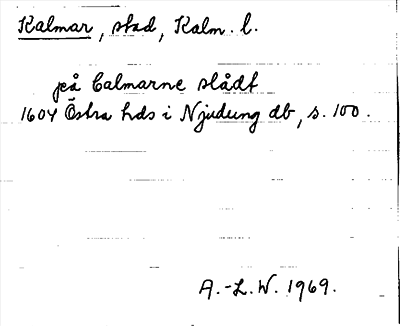 Kalmar, stad, Kalm. l.
på Calmarne slådt
1604 Östra hds i Njudung db, s. 100.
A.-L.W. 1969.